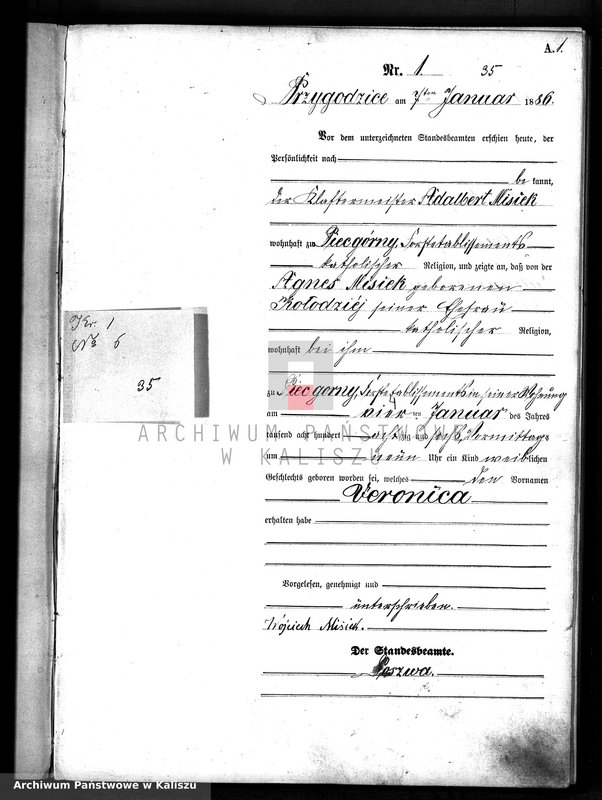 A. 1.
Nr. 1. 35
Przygodzice am 7ten Januar 1886.
Vor dem unterzeichneten Standesbeamten erschien heute, der
Persönlichkeit nach
be kannt,
der Klaftermeister Adalbert Misiek
wohnhaft zu Piecgórny, Forstetablissements
katholischer Religion, und zeigte an, daß von der
Agnes Misiek geborenen
Kołodziéj seiner Ehefrau
katholischer Religion,
wohnhaft bei ihm
Kr. 1
No 6
35
zu Piecgorny, Forstetablissements in seiner Wohnung
am vier ten Januar des Jahres
tausend acht hundert achtzig und sechs, Vormittags
um neun Uhr ein Kind weiblichen
Geschlechts geboren worden sei, welches den Vornamen
Veronica
erhalten habe
Vorgelesen, genehmigt und
unterschrieben.
Wójciech Misiek.
Der Standesbeamte.
Poszwa.
ARCHIWUM PAŃSTWOWE
W KALISZU
Archiwum Państwowe w Kaliszu